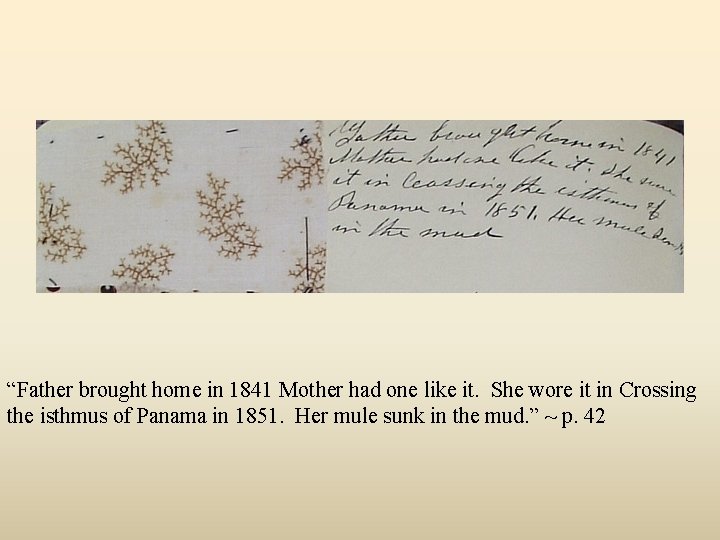 Father brought home in 1841
Mother had one like it. She wore
it in Crossing the isthmus of
Panama in 1851. Her mule sunk
in the mud
“Father brought home in 1841 Mother had one like it.  She wore it in Crossing
the isthmus of Panama in 1851.  Her mule sunk in the mud. ” ~ p. 42